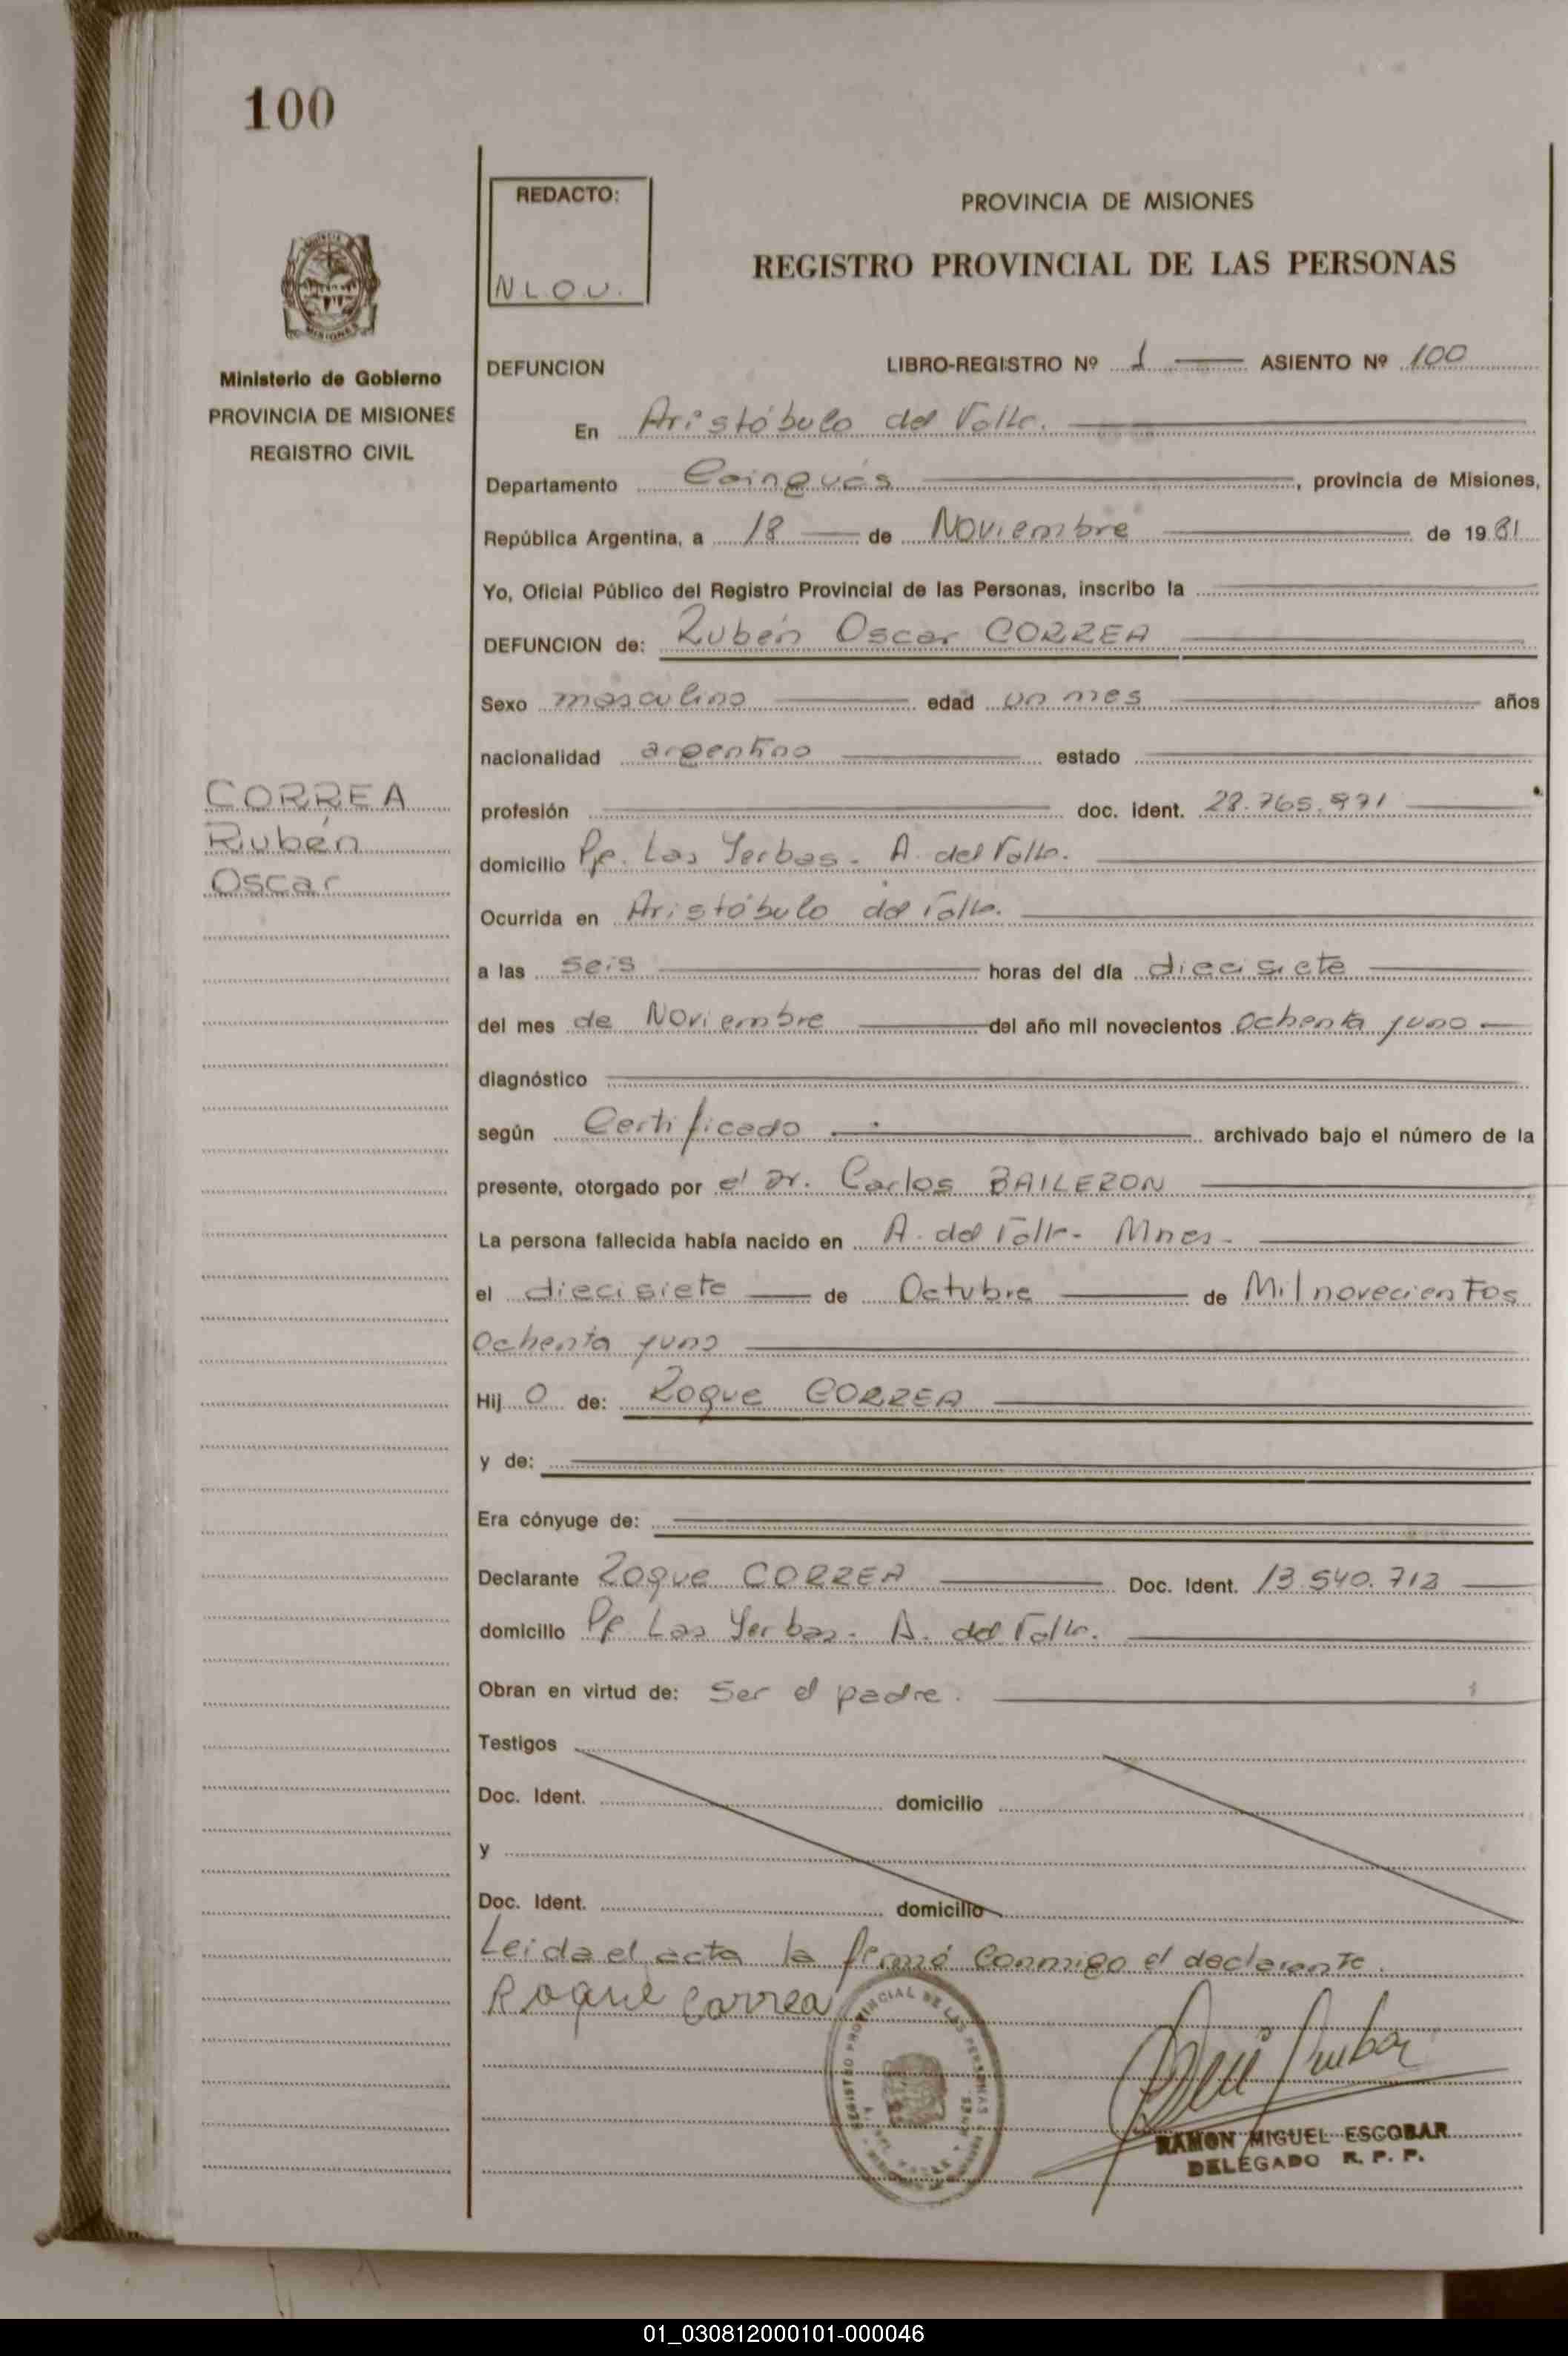 100
REDACTO:
N.L.O.U.
PROVINCIA DE MISIONES
REGISTRO PROVINCIAL DE LAS PERSONAS
MISIONES
Ministerio de Gobierno
PROVINCIA DE MISIONES
REGISTRO CIVIL
DEFUNCION LIBRO-REGISTRO Nº 1 ASIENTO Nº 100
En Aristóbulo del Valle.
Departamento Cainguás, provincia de Misiones,
República Argentina, a 18 de Noviembre de 1981
Yo, Oficial Público del Registro Provincial de las Personas, inscribo la
DEFUNCION de: Rubén Oscar CORREA
Sexo masculino edad un mes años
nacionalidad argentino estado
CORREA
Rubén
Oscar
profesión doc. ident. 28.765.971
domicilio Pje. Las Yerbas - A. del Valle.
Ocurrida en Aristóbulo del Valle.
a las seis horas del día diecisiete
del mes de Noviembre del año mil novecientos ochenta y uno
diagnóstico
según Certificado archivado bajo el número de la
presente, otorgado por el Dr. Carlos BAILERON
La persona fallecida había nacido en A. del Valle - Mnes.
el diecisiete de Octubre de Mil novecientos
ochenta y uno
Hij o de: Roque CORREA
y de:
Era cónyuge de:
Declarante Roque CORREA Doc. Ident. 13.540.713
domicilio Pje Las Yerbas - A. del Valle.
Obran en virtud de: Ser el padre.
Testigos
Doc. Ident. domicilio
y
Doc. Ident. domicilio
Leida el acta la firmó conmigo el declarante.
Roque Correa
REGISTRO PROVINCIAL DE LAS PERSONAS
RAMON MIGUEL ESCOBAR
DELEGADO R. P. P.
01_030812000101-000046